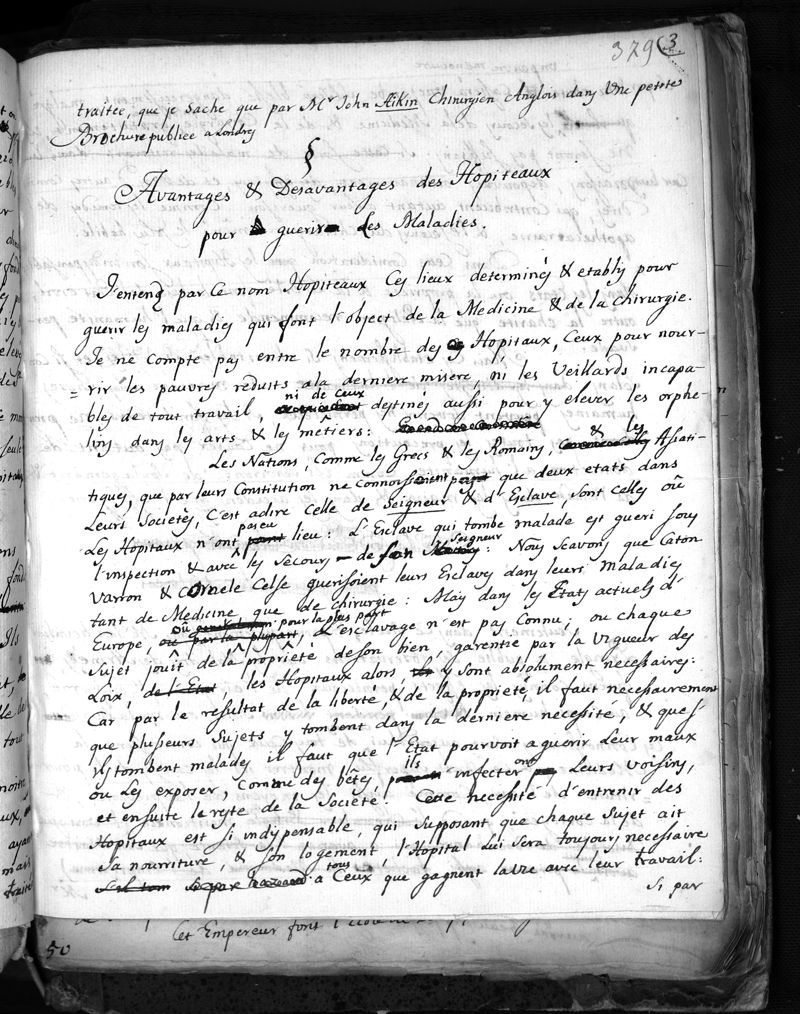 379 (3
traitée, que je sache que par Mr John Aikin Chirurgien Anglois dans Une petite
Brochure publiée a Londres
§
Avantages & Desavantages des Hopiteaux
pour guerir Les Maladies.
J'entens par Ce nom Hopiteaux Ces lieux determinés & etablis pour
guerir les maladies qui font l'object de la Medicine & de la Chirurgie.
Je ne compte pas entre le nombre des Hopitaux, Ceux pour nour-
= rir les pauvres reduits a la derniere misere, ni les Veillards incapa-
bles de tout travail, ni de Ceux destinés aussi pour y elever les orphe-
lins dans les arts & les mêtiers:
Les Nations, Comme les Grecs & les Romains, & les Assiati-
tiques, que par leurs Constitution ne connoissoient que deux etats dans
Leurs Societés, C'est adire Celle de Seigneur & d'Esclave, sont Celles où
Les Hopitaux n'ont pas eu lieu: L'Esclave qui tombe malade est gueri sous
l'inspection & avec les Secours de son Seigneur: Nous Scavons que Caton
Varron & Cornele Celse guerisoient leurs Esclaves dans leurs Maladies
tant de Medicine que de Chirurgie: Mais dans les Etats actuels d'
Europe, Où pour la plus part l'esclavage n'est pas Connu, ou chaque
Sujet jouît de la propriété de son bien, garentie par la Vigueur des
Loix, les Hopitaux alors, y sont absolument necessaires:
Car par le resultat de la liberté, & de la proprieté, il faut necessairement
que plusieurs Sujets y tombent dans la derniere necessité, & que s'
ils tombent malades il faut que l'Etat pourvoit a guerir Leur maux
ou Les exposer, Comme des bêtes, ils infecteront Leurs Voisins,
et ensuite le reste de la Societé. Cette necessité d'entrenir des
Hopitaux est si indispensable, qui Supposant que chaque Sujet ait
Sa nourriture, & son logement, l'Hopital Lui Sera toujours necessaire
a tous Ceux que gagnent la vie avec leur travail:
Si par
Cet Empereur font
50